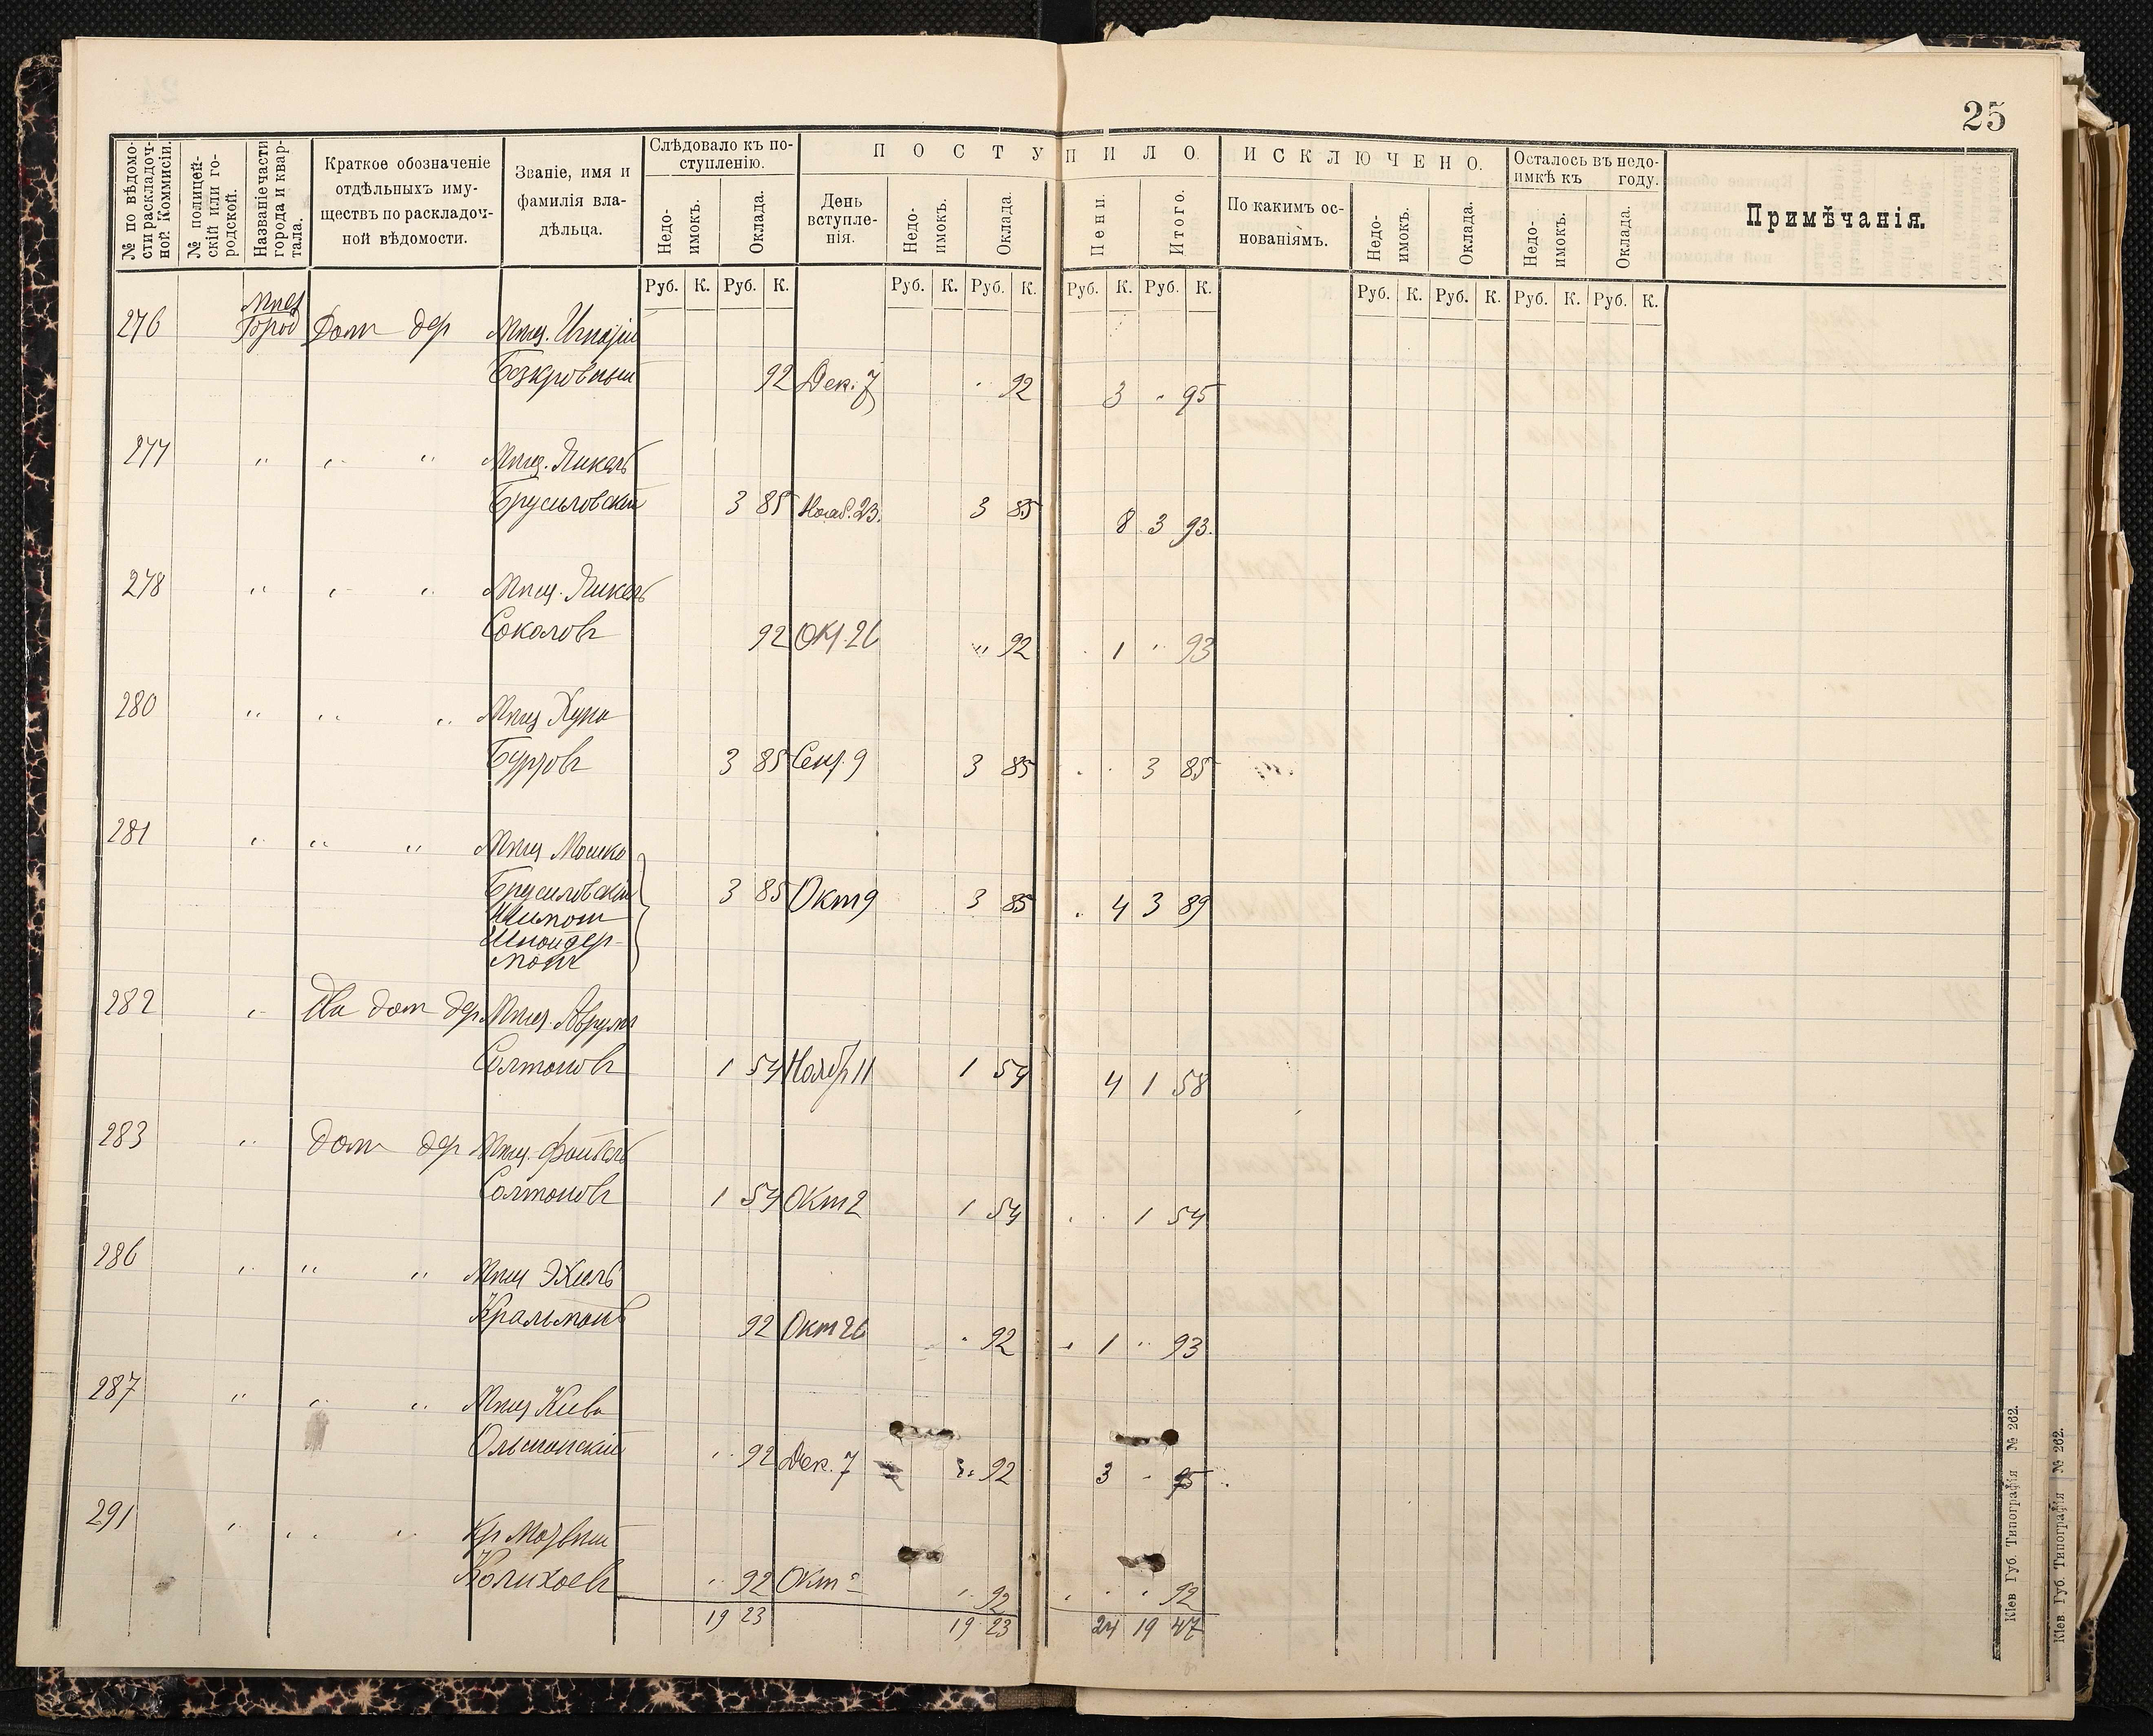 25
№ по вѣдомости раскладочной Коммисіи.
№ полицейскій или городской.
Названіе части города и квартала.
Краткое обозначеніе отдѣльныхъ имуществъ по раскладочной вѣдомости.
Званіе, имя и фамилія владѣльца.
Слѣдовало къ поступленію.
Недоимокъ. Оклада.
ПОСТУПИЛО.
День вступленія. Недоимокъ. Оклада. Пени. Итого.
ИСКЛЮЧЕНО.
По какимъ основаніямъ. Недоимокъ. Оклада.
Осталось въ недоимкѣ къ году.
Недоимокъ. Оклада.
Примѣчанія.
Руб. К. Руб. К. Руб. К. Руб. К. Руб. К. Руб. К. Руб. К. Руб. К. Руб. К. Руб. К.
276 Город Дом дер Мѣщ.
Безкровный 92 Дек. 7 92 3 " 95
277 " " " Мѣщ. Янкель
Брусиловскій 3 85 Нояб. 23. 3 85 8 3 93.
278 " " " Мѣщ. Янкель
Соколовъ 92 Окт. 26 " 92 1 " 93
280 " " " Мѣщ
3 85 Сент. 9 3 85 3 85
281 " " " Мѣщ Мошко
Брусиловскій 3 85 Окт 9 3 85 4 3 89
Шнойдер-
манъ
282 " Два дом дер Мѣщ. Аврумъ
Солтоновъ 1 54 Нояб 11 1 54 4 1 58
283 " Дом дер Мѣщ. Файвель
Солтоновъ 1 54 Окт 2 1 54 1 54
286 " " " Мѣщ Эхиль
92 Окт 26 " 92 1 " 93
287 " " " Мѣщ Кива
Ольшанскій " 92 Дек. 7 92 3 " 95
291 " " " Кр
" 92 Окт " 92 " 92
19 23 19 23 24 19 47
Кіев Губ. Типографія № 262.
Кіев Губ. Типографія № 262.